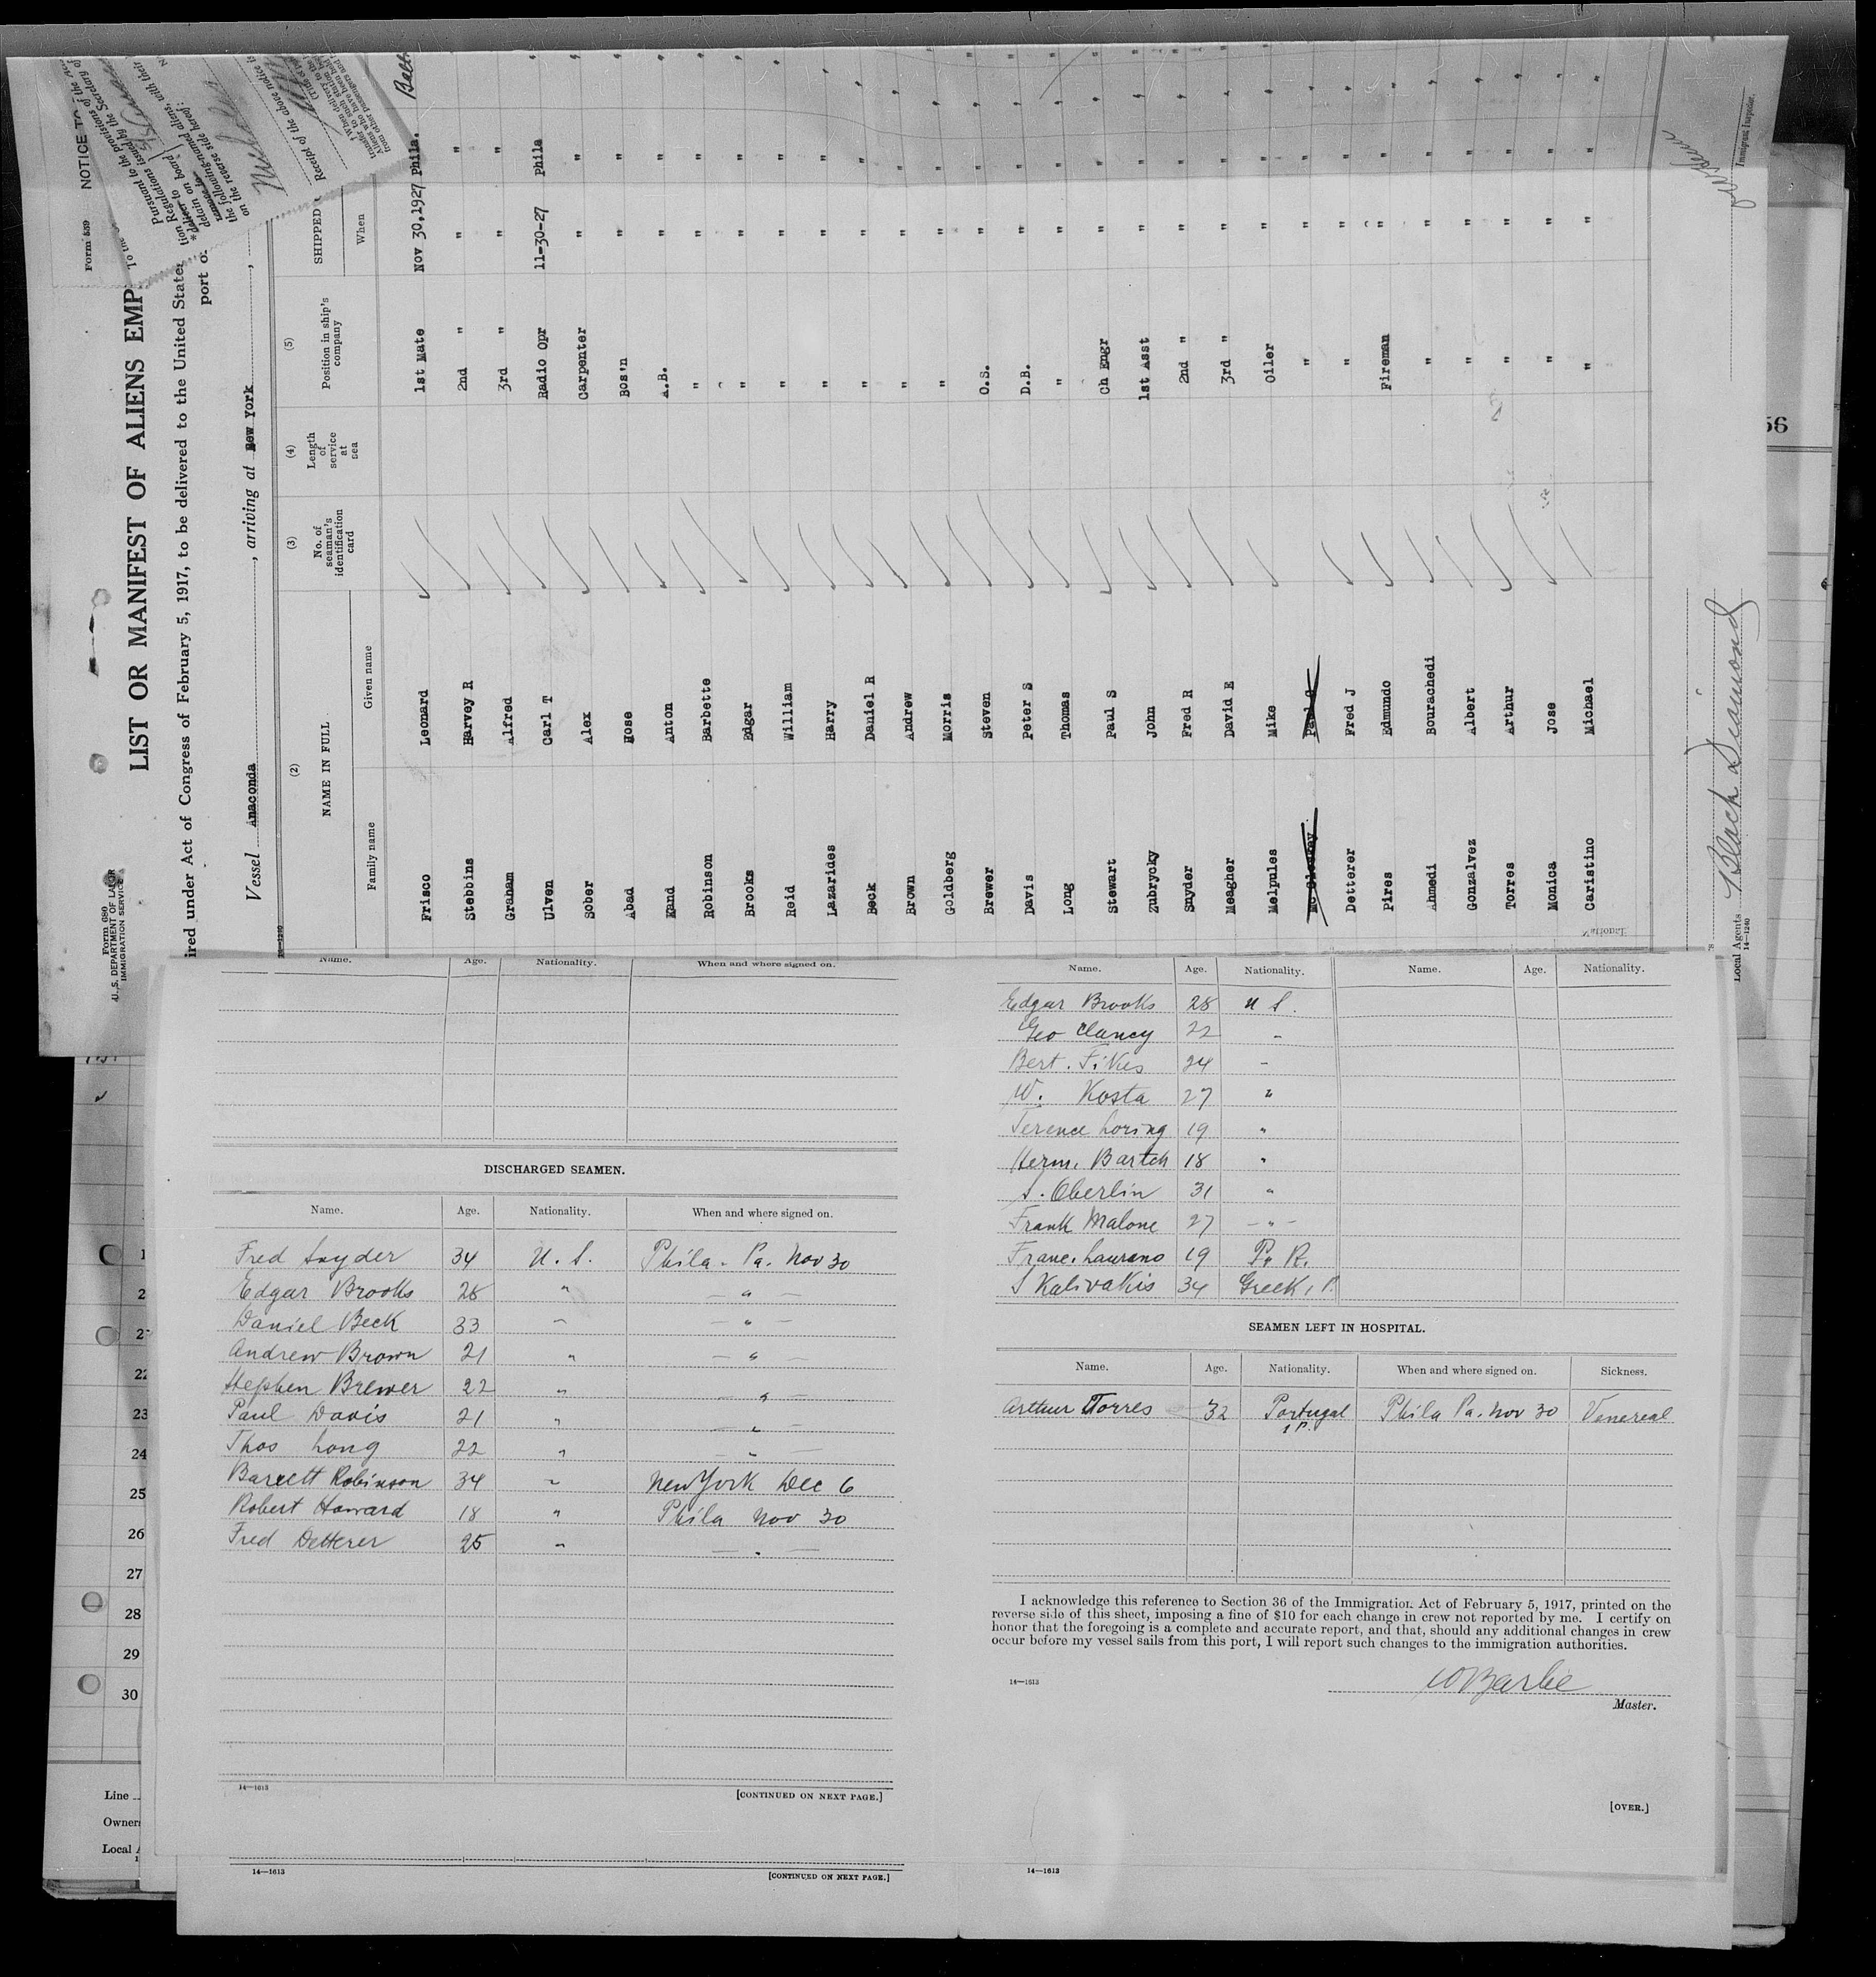 Form 680
U. S. DEPARTMENT OF LABOR
IMMIGRATION SERVICE
LIST OR MANIFEST OF ALIENS EMP
ired under Act of Congress of February 5, 1917, to be delivered to the United State
port o
Vessel Anaconda, arriving at New York
(2) (3) (4) (5)
NAME IN FULL No. of seaman's identification card Length of service at sea Position in ship's company SHIPPED
Family name Given name When
Frisco Leonard 1st Mate Nov 30,1927 Phila.
Stebbins Harvey R 2nd " " "
Graham Alfred 3rd " " "
Ulven Carl T Radio Opr 11-30-27 Phila "
Sober Alex Carpenter " " "
Abad Hose Bos'n " " "
Kand Anton A.B. " " "
Robinson Barbette " " " "
Brooks Edgar " " " "
Reid William " " " "
Lazarides Harry " " " "
Beck Daniel R " " " "
Brown Andrew " " " "
Goldberg Morris " " " "
Brewer Steven O.S. " " "
Davis Peter S D.B. " " "
Long Thomas " " " "
Stewart Paul S Ch Engr " " "
Zubrycky John 1st Asst " " "
Snyder Fred R 2nd " " " "
Meagher David E 3rd " " " "
Melpules Mike Oiler " " "
Mc Closkey Paul " " " "
Detterer Fred J " " " "
Pires Edmundo Fireman " " "
Ahmedi Bourachedi " " " "
Gonzalvez Albert " " " "
Torres Arthur " " " "
Monica Jose " " " "
Caristino Michael " " " "
Local Agents Black Diamond
14—1240
Immigrant Inspector.
Form 539
NOTICE TO
Pursuant to the provisions of the
Regulations issued by the Secretary of
the following-named aliens, with their
on the reverse side hereof:
Receipt of the above notice
56
Name. Age. Nationality. When and where signed on.
DISCHARGED SEAMEN.
Name. Age. Nationality. When and where signed on.
Fred Snyder 34 U. S. Phila. Pa. Nov 30
Edgar Brooks 28 " — " —
Daniel Beck 33 " — " —
Andrew Brown 21 " — " —
Stephen Brewer 22 " — " —
Paul Davis 21 " — " —
Thos Long 22 " — " —
Barrett Robinson 34 " New York Dec 6
Robert Howard 18 " Phila Nov 30
Fred Detterer 25 " — " —
14—1613
[CONTINUED ON NEXT PAGE.]
Name. Age. Nationality. Name. Age. Nationality.
Edgar Brooks 28 U S.
Geo Clancy 22 "
Bert. Fikes 24 "
W. Kosta 27 "
Terence Loring 19 "
Herm. Bartch 18 "
S. Oberlin 31 "
Frank Malone 27 — " —
Franc. Laureno 19 P. R.
S Kalivakis 34 Greek, P.
SEAMEN LEFT IN HOSPITAL.
Name. Age. Nationality. When and where signed on. Sickness.
Arthur Torres 32 Portugal Phila Pa. Nov 30 Venereal
1 P.
I acknowledge this reference to Section 36 of the Immigration Act of February 5, 1917, printed on the
reverse side of this sheet, imposing a fine of $10 for each change in crew not reported by me. I certify on
honor that the foregoing is a complete and accurate report, and that, should any additional changes in crew
occur before my vessel sails from this port, I will report such changes to the immigration authorities.
14—1613
Master.
[OVER.]
22
23
24
25
26
27
28
29
30
Line
Owner
Local A
14—1613
[CONTINUED ON NEXT PAGE.]
14—1613